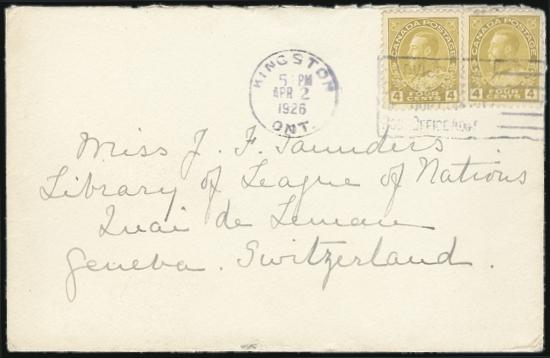 CANADA POSTAGE CANADA POSTAGE
4 FOUR CENTS 4 4 FOUR CENTS 4
KINGSTON
5 PM
APR 2
1926
ONT.
Miss J. F. Saunders
Library of League of Nations
Quai de Leman
Geneva. Switzerland.